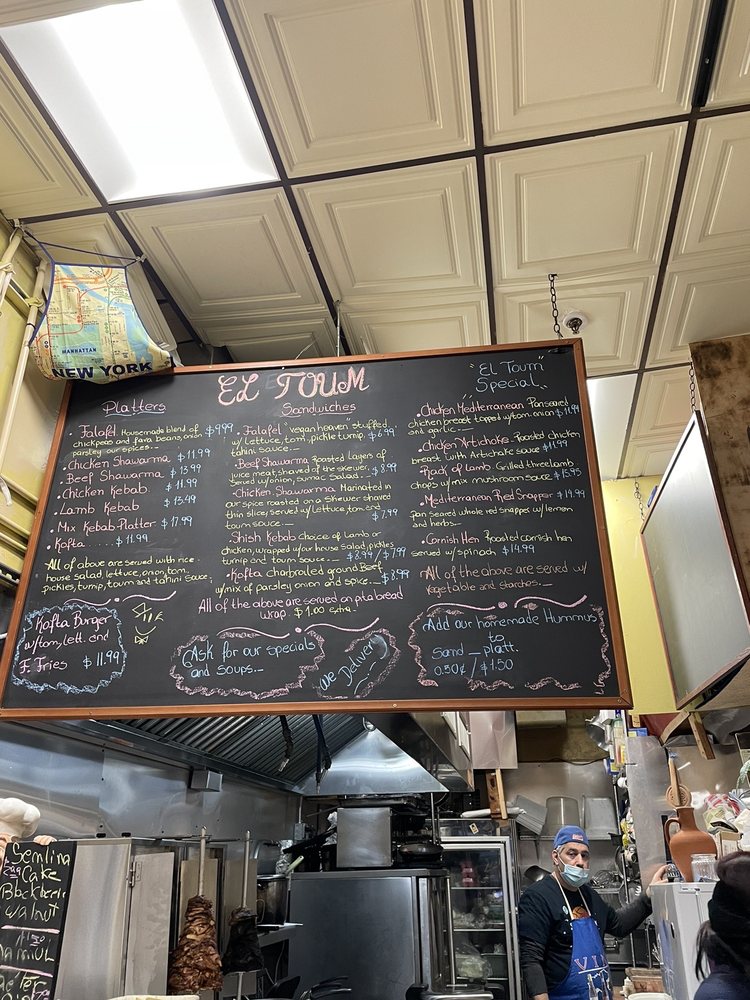 EL TOUM
Platters
• Falafel Housemade blend of $9.99
chickpeas and fava beans, onion
parsley our spices.-
• Chicken Shawarma $11.99
• Beef Shawarma $13.99
• Chicken Kebab. $11.99
• Lamb Kebab $13.49
• Mix Kebab-Platter $17.99
• Kafta ...... $11.99
All of above are served with rice
house salad, lettuce, onion, tom.
pickles, turnip, toum and tahini sauce.
Kafta Burger
w/tom, lett. and
F. Fries $11.99
Sandwiches
• Falafel "vegan heaven" stuffed
w/ lettuce, tom, pickle turnip, $6.99
tahini sauce.-
• Beef Shawarma Roasted Layers of
juice meat, shaved of the skewer, $8.99
Served w/onion, sumac Salad.-
• Chicken Shawarma Marinated in
our spice roasted on a Skewer shaved
thin slice, served w/ Lettuce, tom and
toum sauce.- $7.99
Shish Kebab choice of Lamb or
chicken, wrapped w/our house salad, pickles
turnip and toum sauce.- $8.99 / $7.99
• Kafta charbroiled ground Beef
w/mix of parsley onion and spice.- $8.99
All of the above are served on pita bread
wrap. $1.00 extra.
Ask for our specials
and Soups.-
we Deliver
"El Toum"
Special..
• Chicken Mediterranean Panseared
chicken breast topped w/tom, onion $11.99
and garlic.-
• Chicken Artichoke Roasted chicken
breast with Artichoke sauce $11.99
• Rack of Lamb. Grilled three lamb
chops w/ mix mushroom Sauce $15.95
• Mediterranean Red Snapper $19.99
Pan seared whole red Snapper w/ lemon
and herbs.-
• Cornish Hen Roasted cornish hen
served w/ spinach. $14.99
All of the above are served w/
vegetable and starches.-
Add our homemade Hummus
to
Sand - platt.
0.50¢ / $1.50
MANHATTAN
NEW YORK
Semlina
Cake
walnut